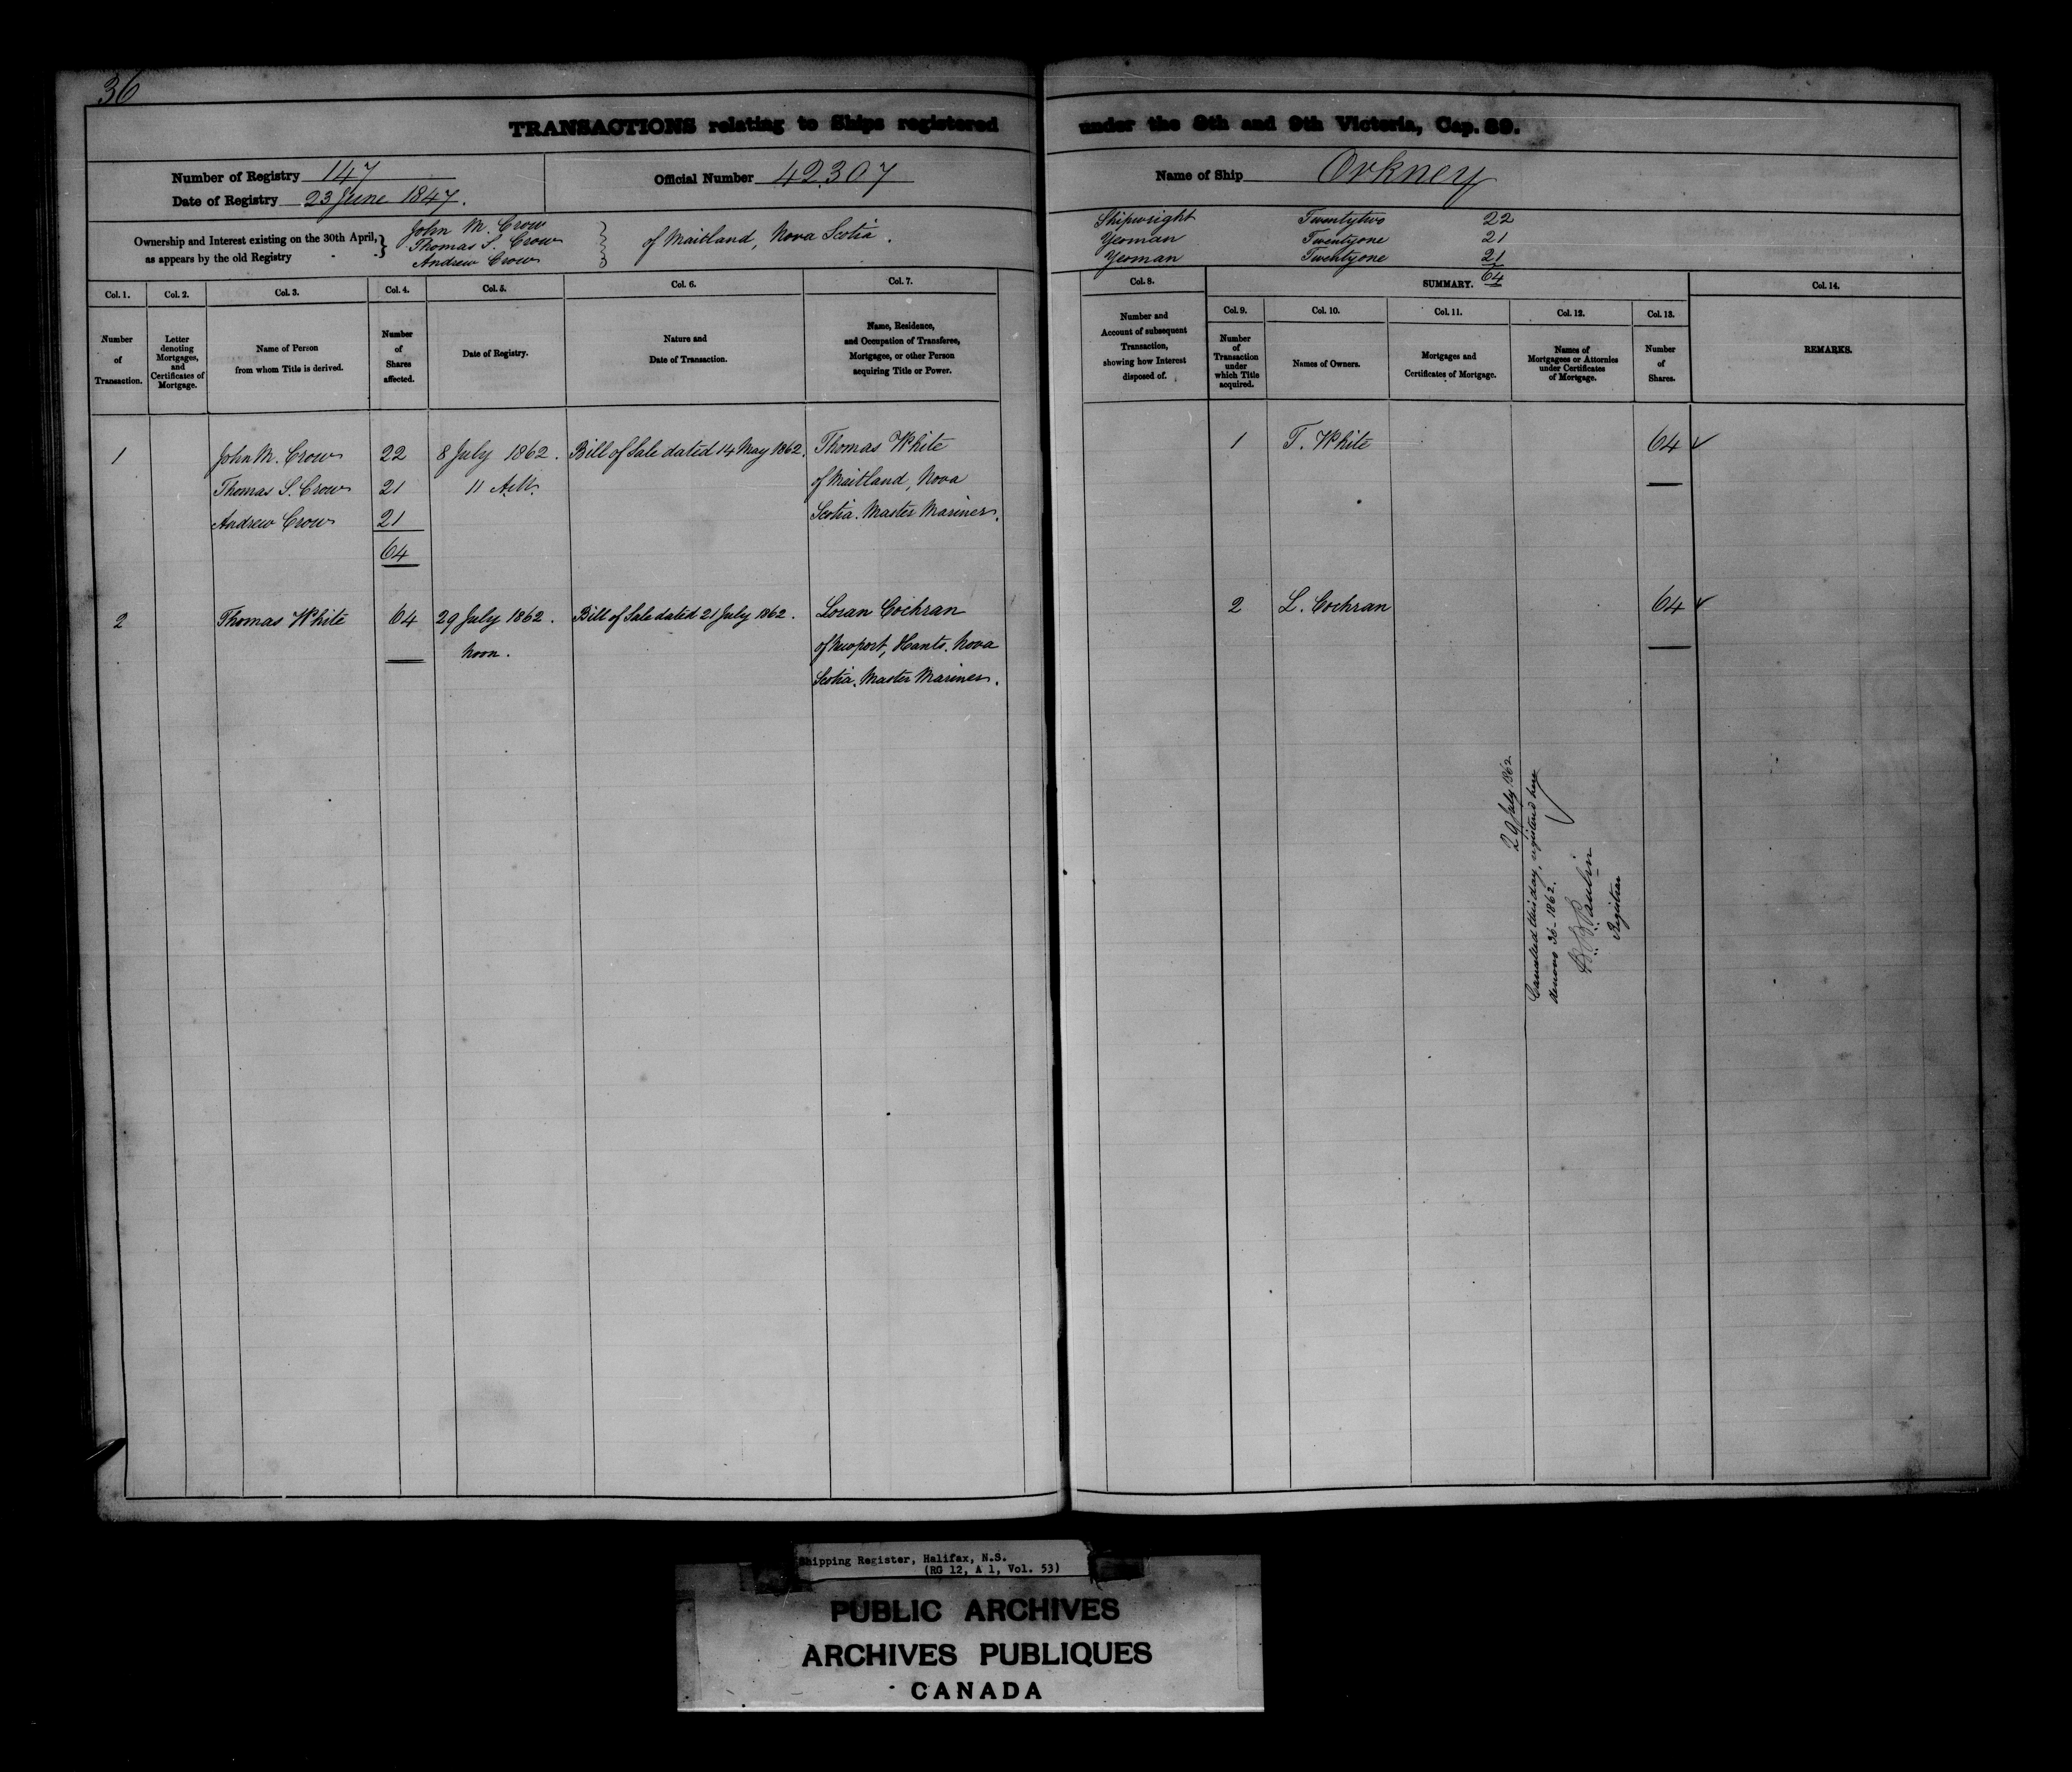 36
TRANSACTIONS relating to Ships registered under the 8th and 9th Victoria, Cap. 89.
Number of Registry 147
Date of Registry 23 June 1847.
Official Number 42307
Name of Ship Orkney
Ownership and Interest existing on the 30th April, as appears by the old Registry
John M. Crow
Thomas S. Crow
Andrew Crow
of Maitland, Nova Scotia.
Shipwright Twentytwo 22
Yeoman Twentyone 21
Yeoman Twentyone 21
64
Col. 1. Col. 2. Col. 3. Col. 4. Col. 5. Col. 6. Col. 7.
Number of Transaction.
Letter denoting Mortgages, and Certificates of Mortgage.
Name of Person from whom Title is derived.
Number of Shares affected.
Date of Registry.
Nature and Date of Transaction.
Name, Residence, and Occupation of Transferee, Mortgagee, or other Person acquiring Title or Power.
Col. 8. SUMMARY. Col. 14.
Number and Account of subsequent Transaction, showing how Interest disposed of.
Col. 9. Col. 10. Col. 11. Col. 12. Col. 13.
Number of Transaction under which Title acquired.
Names of Owners.
Mortgages and Certificates of Mortgage.
Names of Mortgagees or Attornies under Certificates of Mortgage.
Number of Shares.
REMARKS.
1 John M. Crow 22 8 July 1862. Bill of Sale dated 14 May 1862. Thomas White
Thomas S. Crow 21 11 A.M. of Maitland, Nova
Andrew Crow 21 Scotia. Master Mariner.
64
1 T. White 64
2 Thomas White 64 29 July 1862. Bill of Sale dated 21 July 1862. Loran Cochran
noon. of Newport, Hants. Nova
Scotia. Master Mariner.
2 L. Cochran 64
29 July 1862
Cancelled this day, registered here
denovo 36-1862.
Paulin
Registrar
Shipping Register, Halifax, N.S.
(RG 12, A 1, Vol. 53)
PUBLIC ARCHIVES
ARCHIVES PUBLIQUES
CANADA